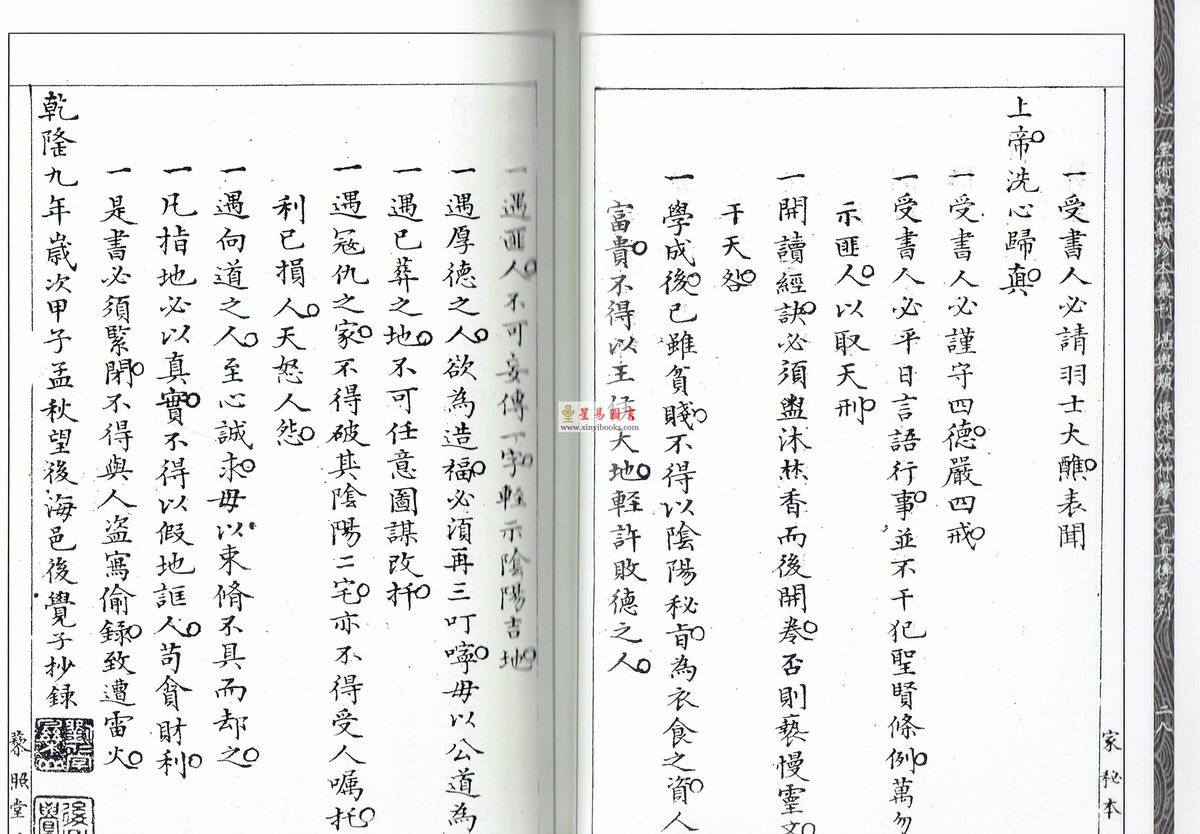 一受書人必請羽士大醮表聞
上帝洗心歸真
一受書人必謹守四德嚴四戒
一受書人必平日言語行事並不干犯聖賢條例萬勿
示匪人以取天刑
一開讀經訣必須盥沐焚香而後開卷否則褻慢靈文
干天咎
一學成後己雖貧賤不得以陰陽秘旨為衣食之資人
富貴不得以王侯大地輕許敗德之人
一遇匪人不可妄傳一字輕示陰陽吉地
一遇厚德之人欲為造福必須再三叮嚀毋以公道為
一遇已葬之地不可任意圖謀改扦
一遇冦仇之家不得破其陰陽二宅亦不得受人囑托
利己損人天怒人怨
一遇向道之人至心誠求毋以束脩不具而却之
一凡指地必以真實不得以假地誆人苟貪財利
一是書必須緊閉不得與人盗寫偷錄致遭雷火
乾隆九年歲次甲子孟秋望後海邑後覺子抄録
家秘本
藜照堂
心一堂術數古籍珍本叢刊 堪輿類 蔣徒張仲馨三元真傳系列 二八
星易圖書
www.xinyibooks.com